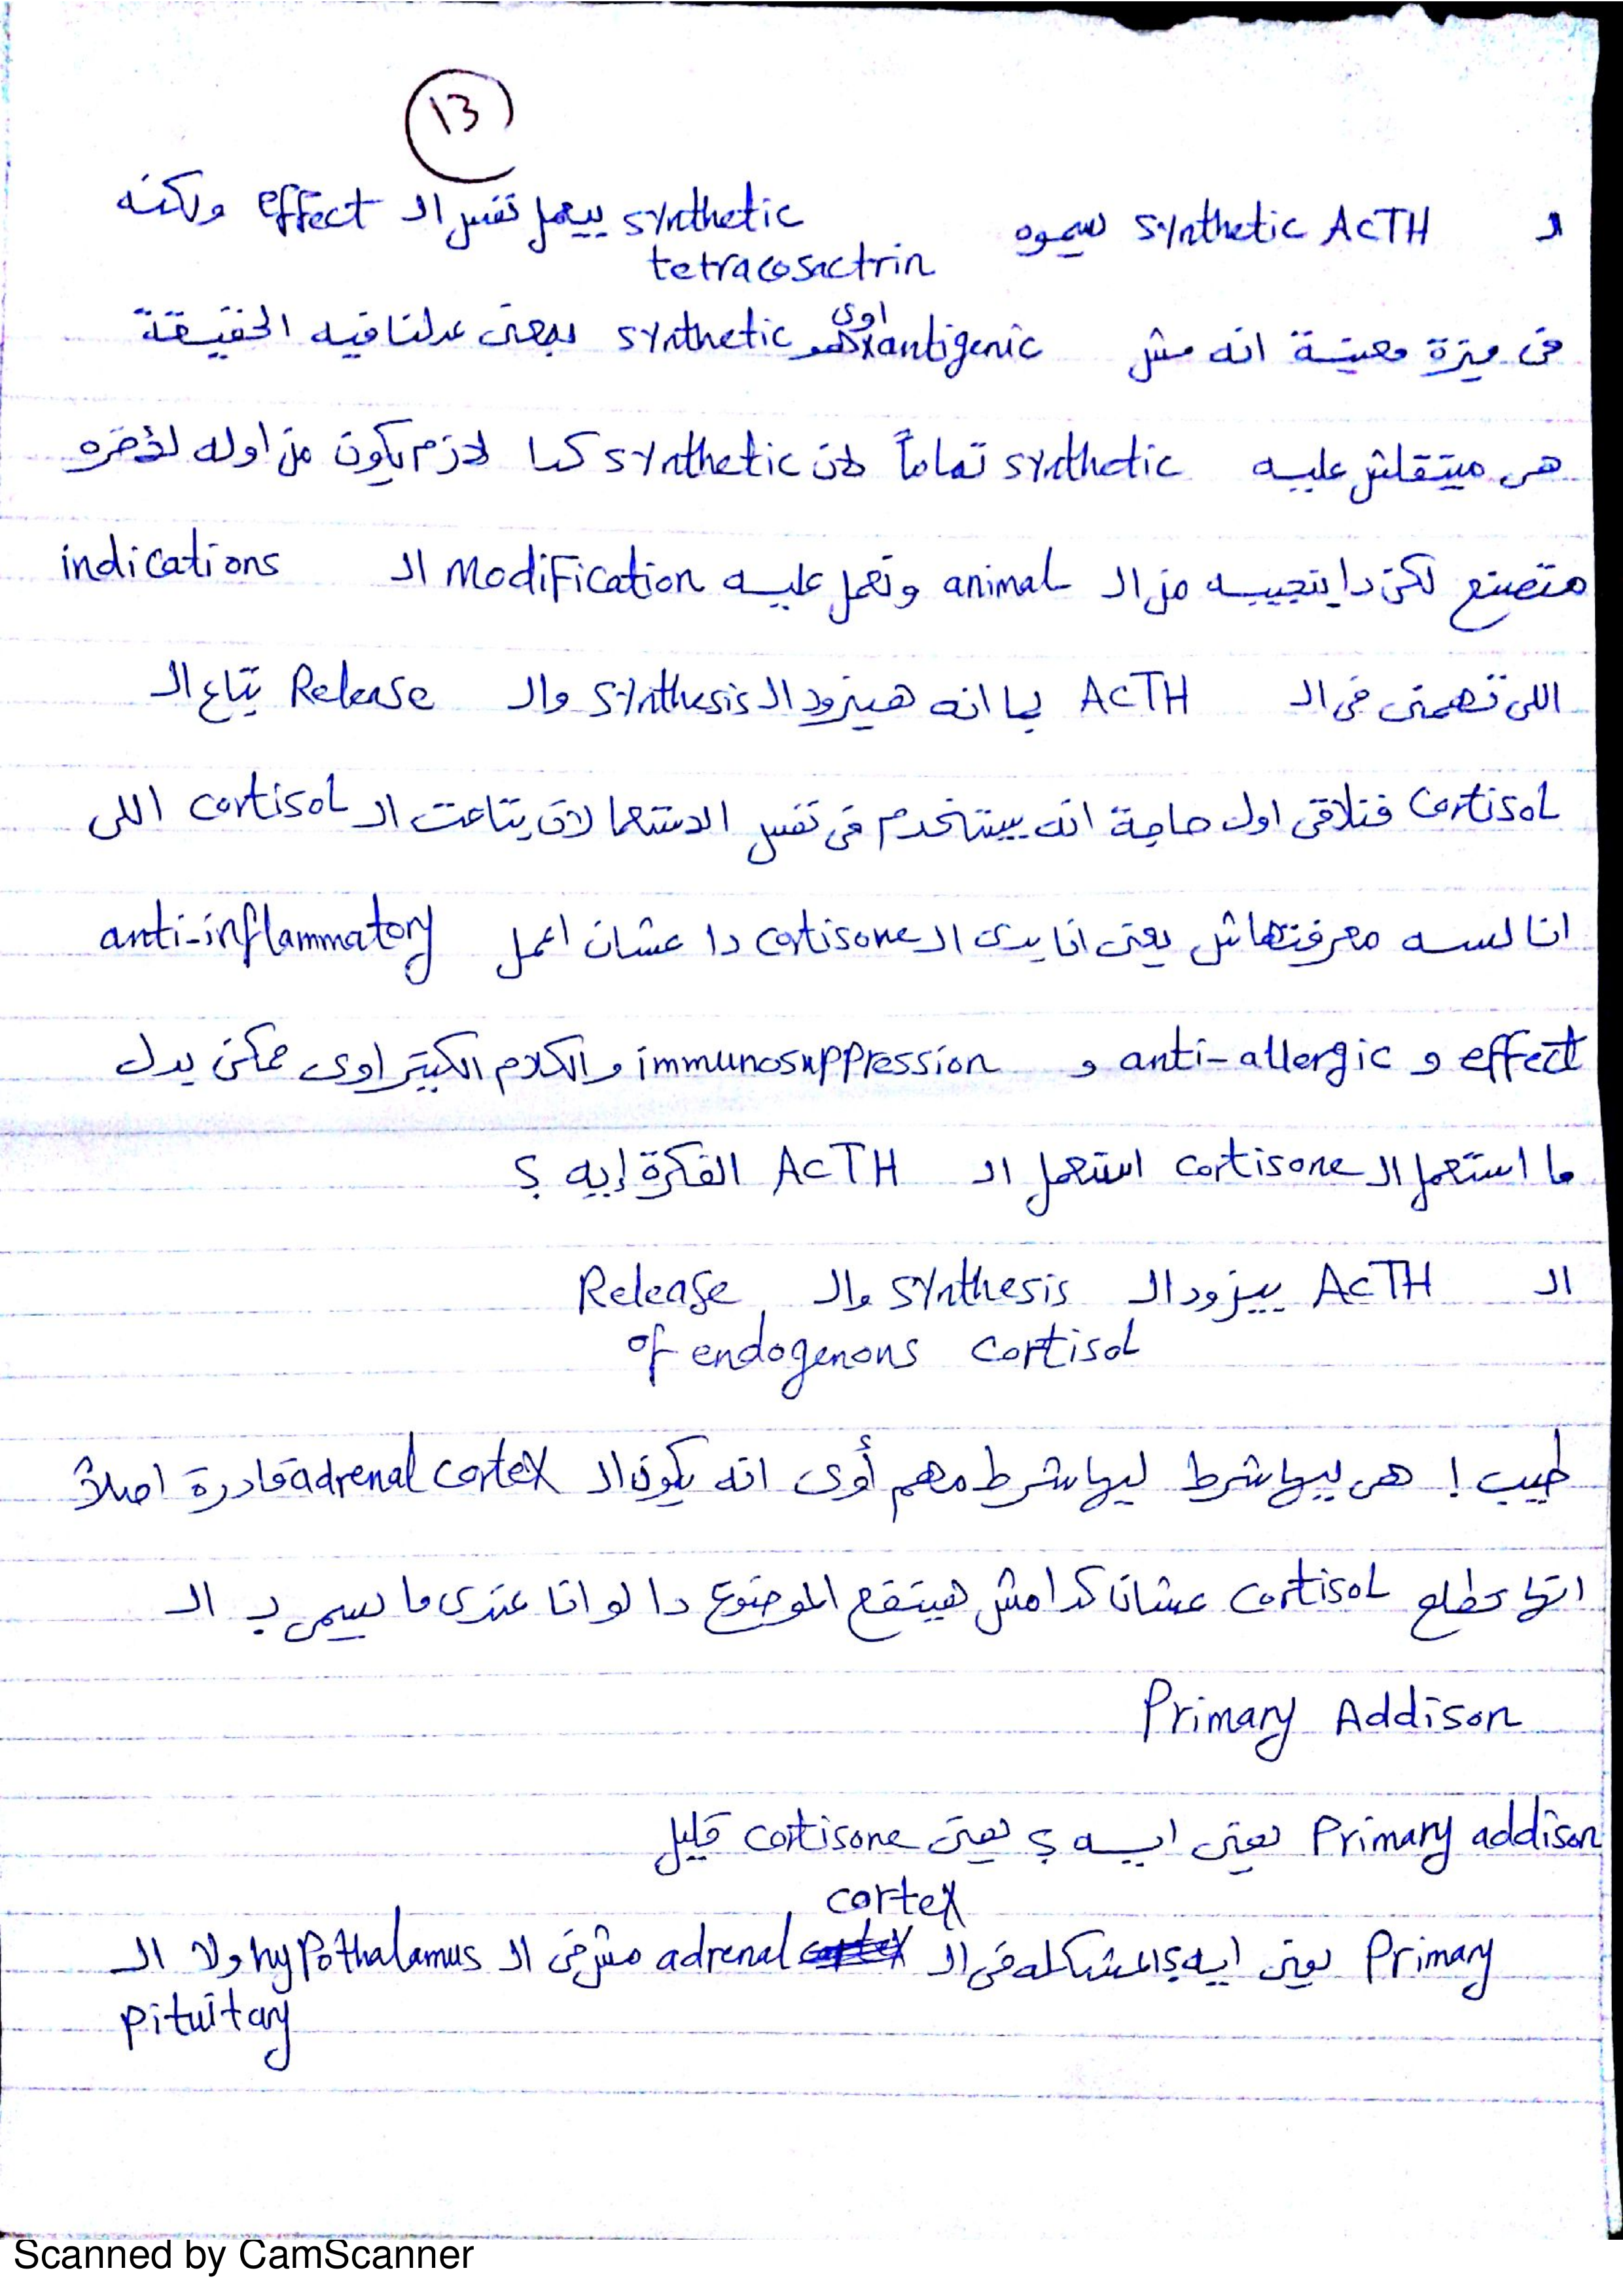 13
ال synthetic ACTH بيسموه synthetic بيعمل نفس ال effect ولكنه
tetracosactrin
في ميزة معينة انه مش antigenic اوى هو synthetic بمعنى عدلنا فيه الحقيقة
هى ميتقلش عليه synthetic تماماً لان synthetic كدا لازم يكون من اوله لأخره
متصنع لكن دا بنجيبه من ال animal ونعمل عليه modification ال indications
اللى تهمنى فى ال ACTH بما انه هيزود ال synthesis وال Release بتاع ال
cortisol فنلاقى اول حاجة انه بيستخدم فى نفس الاستعمالات بتاعت ال cortisol اللى
انا لسه معرفتهاش يعنى انا بدى ال cortisone دا عشان اعمل anti-inflammatory
effect و anti-allergic و immunosuppression والكلام الكبير اوى ممكن بدل
ما استعمل ال cortisone استعمل ال ACTH الفكرة إيه ؟
ال ACTH بيزود ال synthesis وال Release
of endogenous cortisol
طيب ! هى ليها شرط ليها شرط مهم أوى انه يكون ال adrenal cortex قادرة اصلاً
انها تطلع cortisol عشان كدا مش هينفع الموضوع دا لو انا عندى ما يسمى ب ال
Primary Addison
Primary addison يعنى ايه ؟ يعنى cortisone قليل
Primary يعنى ايه ؟ المشكله فى ال adrenal cortex مش فى ال hypothalamus ولا ال
pituitary
Scanned by CamScanner